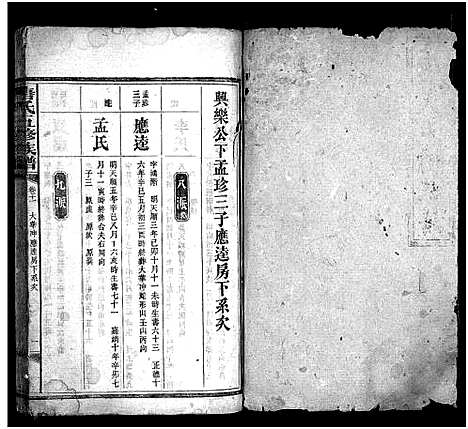 興樂公下孟珍三子應逵房下系次
八派
孟珍
三子
應逵
字鴻漸 明天順三年己卯十月十一未時生書六十三 正德十
六年辛巳五月初三四時終葬大華冲鳳形山壬山丙向
逵
孟氏
明天順五年辛巳八月十六亥時生書七十一 嘉靖十年辛卯七
月十一寅時終葬合夫右同向
子三 原進
九派
氏五修族譜
卷十一 大華冲應逵房下系次
一